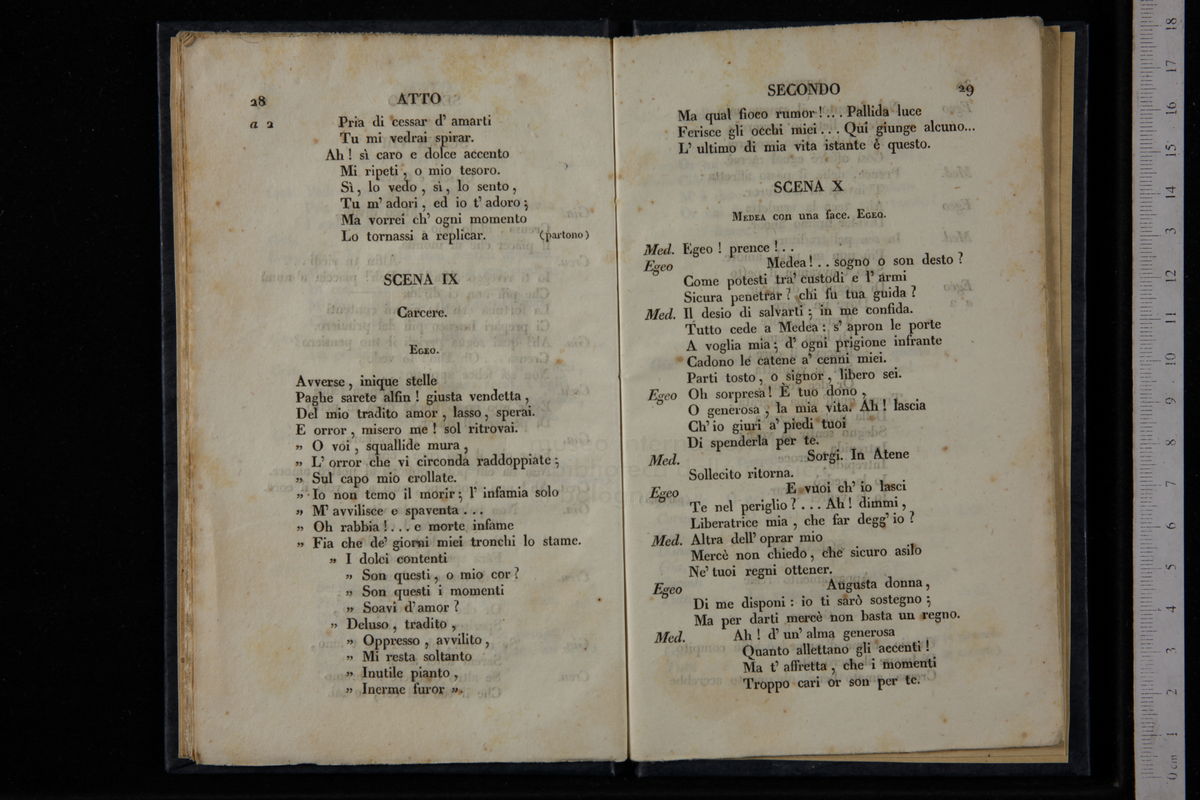 28 ATTO
a 2 Pria di cessar d' amarti
Tu mi vedrai spirar.
Ah! sì caro e dolce accento
Mi ripeti, o mio tesoro.
Sì, lo vedo, sì, lo sento,
Tu m' adori, ed io t' adoro;
Ma vorrei ch' ogni momento
Lo tornassi a replicar. (partono)
SCENA IX
Carcere.
EGEO.
Avverse, inique stelle
Paghe sarete alfin! giusta vendetta,
Del mio tradito amor, lasso, sperai.
E orror, misero me! sol ritrovai.
„ O voi, squallide mura,
„ L' orror che vi circonda raddoppiate;
„ Sul capo mio crollate.
„ Io non temo il morir; l' infamia solo
„ M' avvilisce e spaventa...
„ Oh rabbia!... e morte infame
„ Fia che de' giorni miei tronchi lo stame.
„ I dolci contenti
„ Son questi, o mio cor?
„ Son questi i momenti
„ Soavi d' amor?
„ Deluso, tradito,
„ Oppresso, avvilito,
„ Mi resta soltanto
„ Inutile pianto,
„ Inerme furor „.
SECONDO 29
Ma qual fioco rumor!... Pallida luce
Ferisce gli occhi miei... Qui giunge alcuno...
L' ultimo di mia vita istante è questo.
SCENA X
MEDEA con una face. EGEO.
Med. Egeo! prence!..
Egeo Medea!.. sogno o son desto?
Come potesti tra' custodi e l' armi
Sicura penetrar? chi fu tua guida?
Med. Il desio di salvarti; in me confida.
Tutto cede a Medea: s' apron le porte
A voglia mia; d' ogni prigione infrante
Cadono le catene a' cenni miei.
Parti tosto, o signor, libero sei.
Egeo Oh sorpresa! È tuo dono,
O generosa, la mia vita. Ah! lascia
Ch' io giuri a' piedi tuoi
Di spenderla per te.
Med. Sorgi. In Atene
Sollecito ritorna.
Egeo E vuoi ch' io lasci
Te nel periglio?... Ah! dimmi,
Liberatrice mia, che far degg' io?
Med. Altra dell' oprar mio
Mercè non chiedo, che sicuro asilo
Ne' tuoi regni ottener.
Egeo Augusta donna,
Di me disponi: io ti sarò sostegno;
Ma per darti mercè non basta un regno.
Med. Ah! d' un' alma generosa
Quanto allettano gli accenti!
Ma t' affretta, che i momenti
Troppo cari or son per te.
0 cm 1 2 3 4 5 6 7 8 9 10 11 12 13 14 15 16 17 18